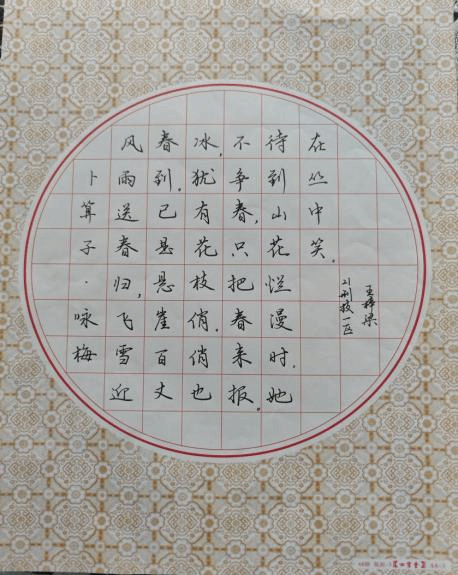 卜算子·咏梅
风雨送春归,飞雪迎
春到.已是悬崖百丈
冰,犹有花枝俏.俏也
不争春,只把春来报。
待到山花烂漫时.她
在丛中笑.
21刑技一区